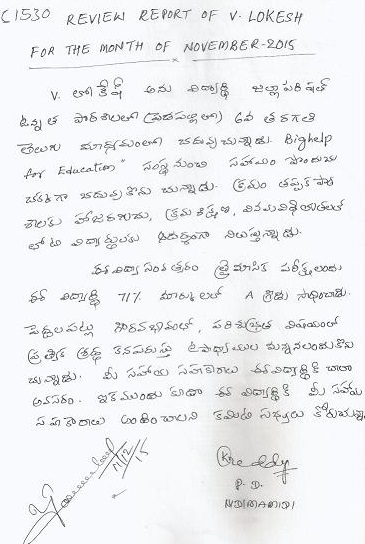 C1530 REVIEW REPORT OF V. LOKESH
FOR THE MONTH OF NOVEMBER-2015
V. లోకేష్ అను విద్యార్థి జిల్లా పరిషత్
ఉన్నత పాఠశాలలో 6వ తరగతి
తెలుగు మాధ్యమంలో చదువుచున్నాడు. Bighelp
for Education" సంస్థ నుంచి సహాయం పొందుచు
చక్కగా చదువుకొను చున్నాడు. క్రమం తప్పక పాఠ
శాలకు హాజరగుచు, క్రమశిక్షణ,
తోటి విద్యార్థులకు ఆదర్శంగా నిలుస్తున్నాడు.
ఈ విద్యా సంవత్సరం త్రైమాసిక పరీక్షలందు
ఈ విద్యార్థి 71% మార్కులతో A గ్రేడు సాధించాడు.
పెద్దలపట్ల గౌరవభావంతో, పరిశుభ్రత విషయంలో
ప్రత్యేక శ్రద్ధ కనపరుస్తూ ఉపాధ్యాయుల మన్ననలందుకొను
చున్నాడు. మీ సహాయ సహకారాలు ఈ విద్యార్థికి చాలా
అవసరం. ఇకముందు కూడా ఈ విద్యార్థికి మీ సహాయ
సహకారాలు అందించాలని కమిటీ సభ్యులు కోరుచున్నా
11/12/15
Kreddy
P.D.
NDIMANIDI